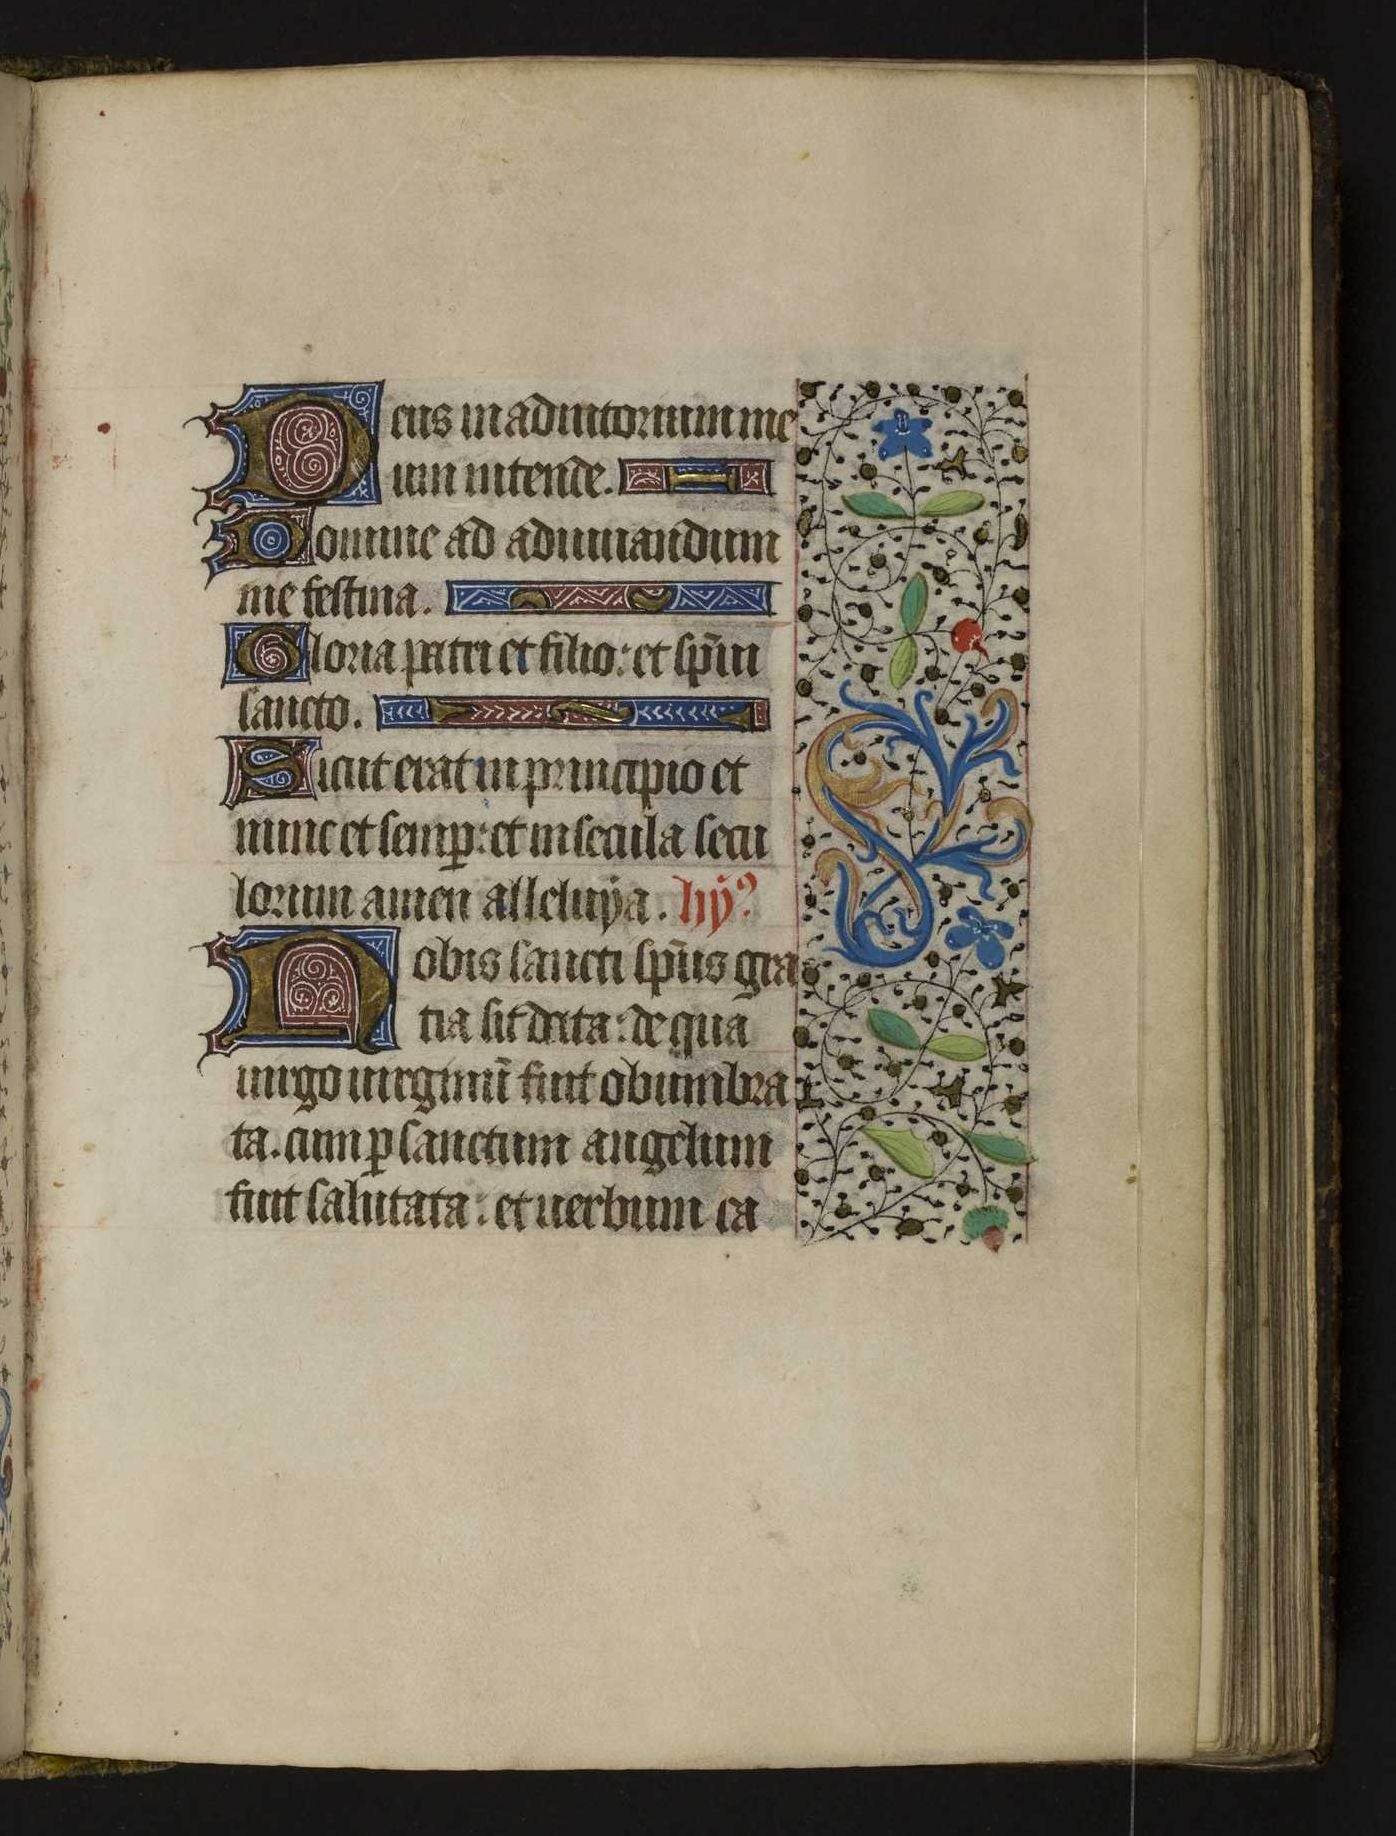 Deus in adiutorium me
um intende.
Domine ad adiuuandum
me festina.
Gloria patri et filio: et sp̄ui
sancto.
Sicut erat in principio et
nunc et semꝑ: et in secula secu
lorum amen alleluÿa. hÿꝰ
Nobis sancti sp̄us gra
tia sit data: de qua
uirgo uirginū fuit obumbra
ta. cum ꝑ sanctum angelum
fuit salutata: et uerbum ca